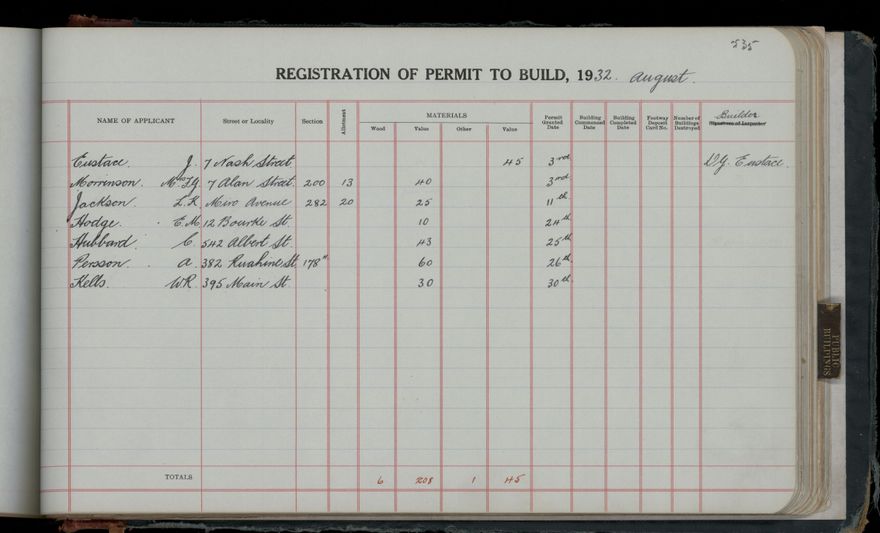 535
REGISTRATION OF PERMIT TO BUILD, 1932. August.
NAME OF APPLICANT Street or Locality Section Allotment MATERIALS Wood Value Other Value Permit Granted Date Building Commenced Date Building Completed Date Footway Deposit Card No. Number of Buildings Destroyed Builder Signature of Inspector
Eustace. J. 7 Nash Street 45 3rd D.G. Eustace.
Morrinson. Mrs 7 Alan Street. 200 13 40 3rd
Jackson. L.R. Miro Avenue 282 20 25 11th
Hodge. E.M. 12 Bourke St. 10 24th
Hubbard. C. 542 Albert St. 43 25th
Persson. A. 382 Ruahine St. 178 60 26th
Kells. W.R. 395 Main St. 30 30th
TOTALS 6 208 1 45
PUBLIC
BUILDINGS